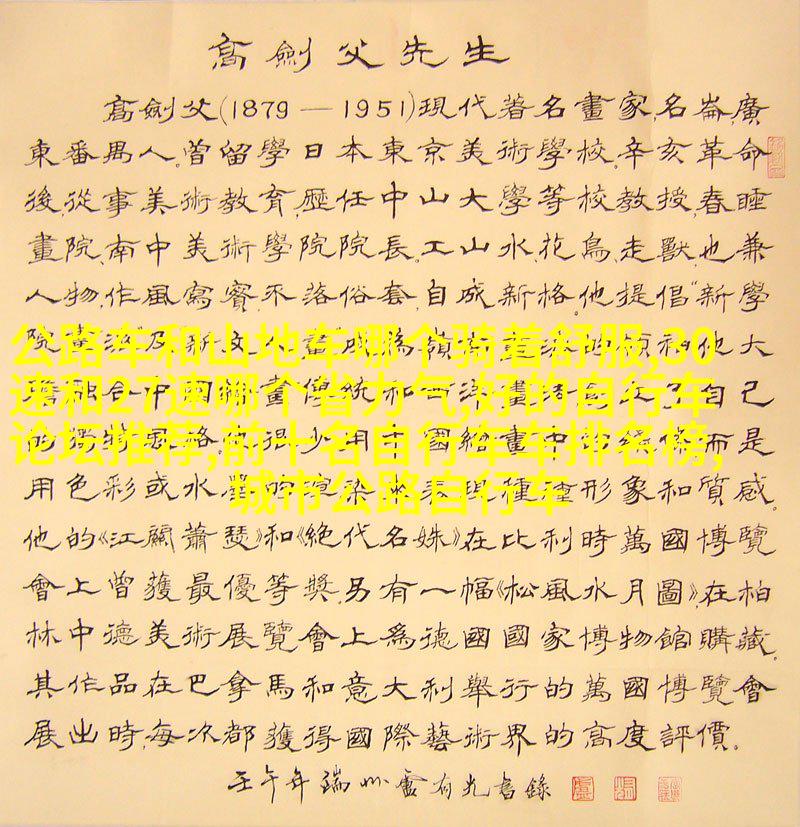 高劍父先生
高劍父(1879—1951)現代著名畫家,名崙,廣
東番禺人。曾留學日本東京美術學校。辛亥革命
後,從事美術教育,歷任中山大學等校教授,春睡
畫院、南中美術學院院長。工山水、花鳥、走獸,也兼
人物,作風寫實,不落俗套,自成新格。他提倡"新學
公路车和山地车哪个骑着舒服,30
速和27速哪个省力气,好的自行车
论坛推荐,前十名自行车车排名榜,
城市公路自行车
用色彩或水墨的渲染來表現種種形象和質感。
他的《江關蕭瑟》和《絕代名姝》在比利時萬國博覽
會上曾獲最優等獎。另有一幅《松風水月圖》,在柏
林中德美術展覽會上爲德國國家博物館購藏。
其作品在巴拿馬和意大利舉行的萬國博覽會
展出時,每次都獲得國際藝術界的高度評價。
壬午年端州盧有光書錄